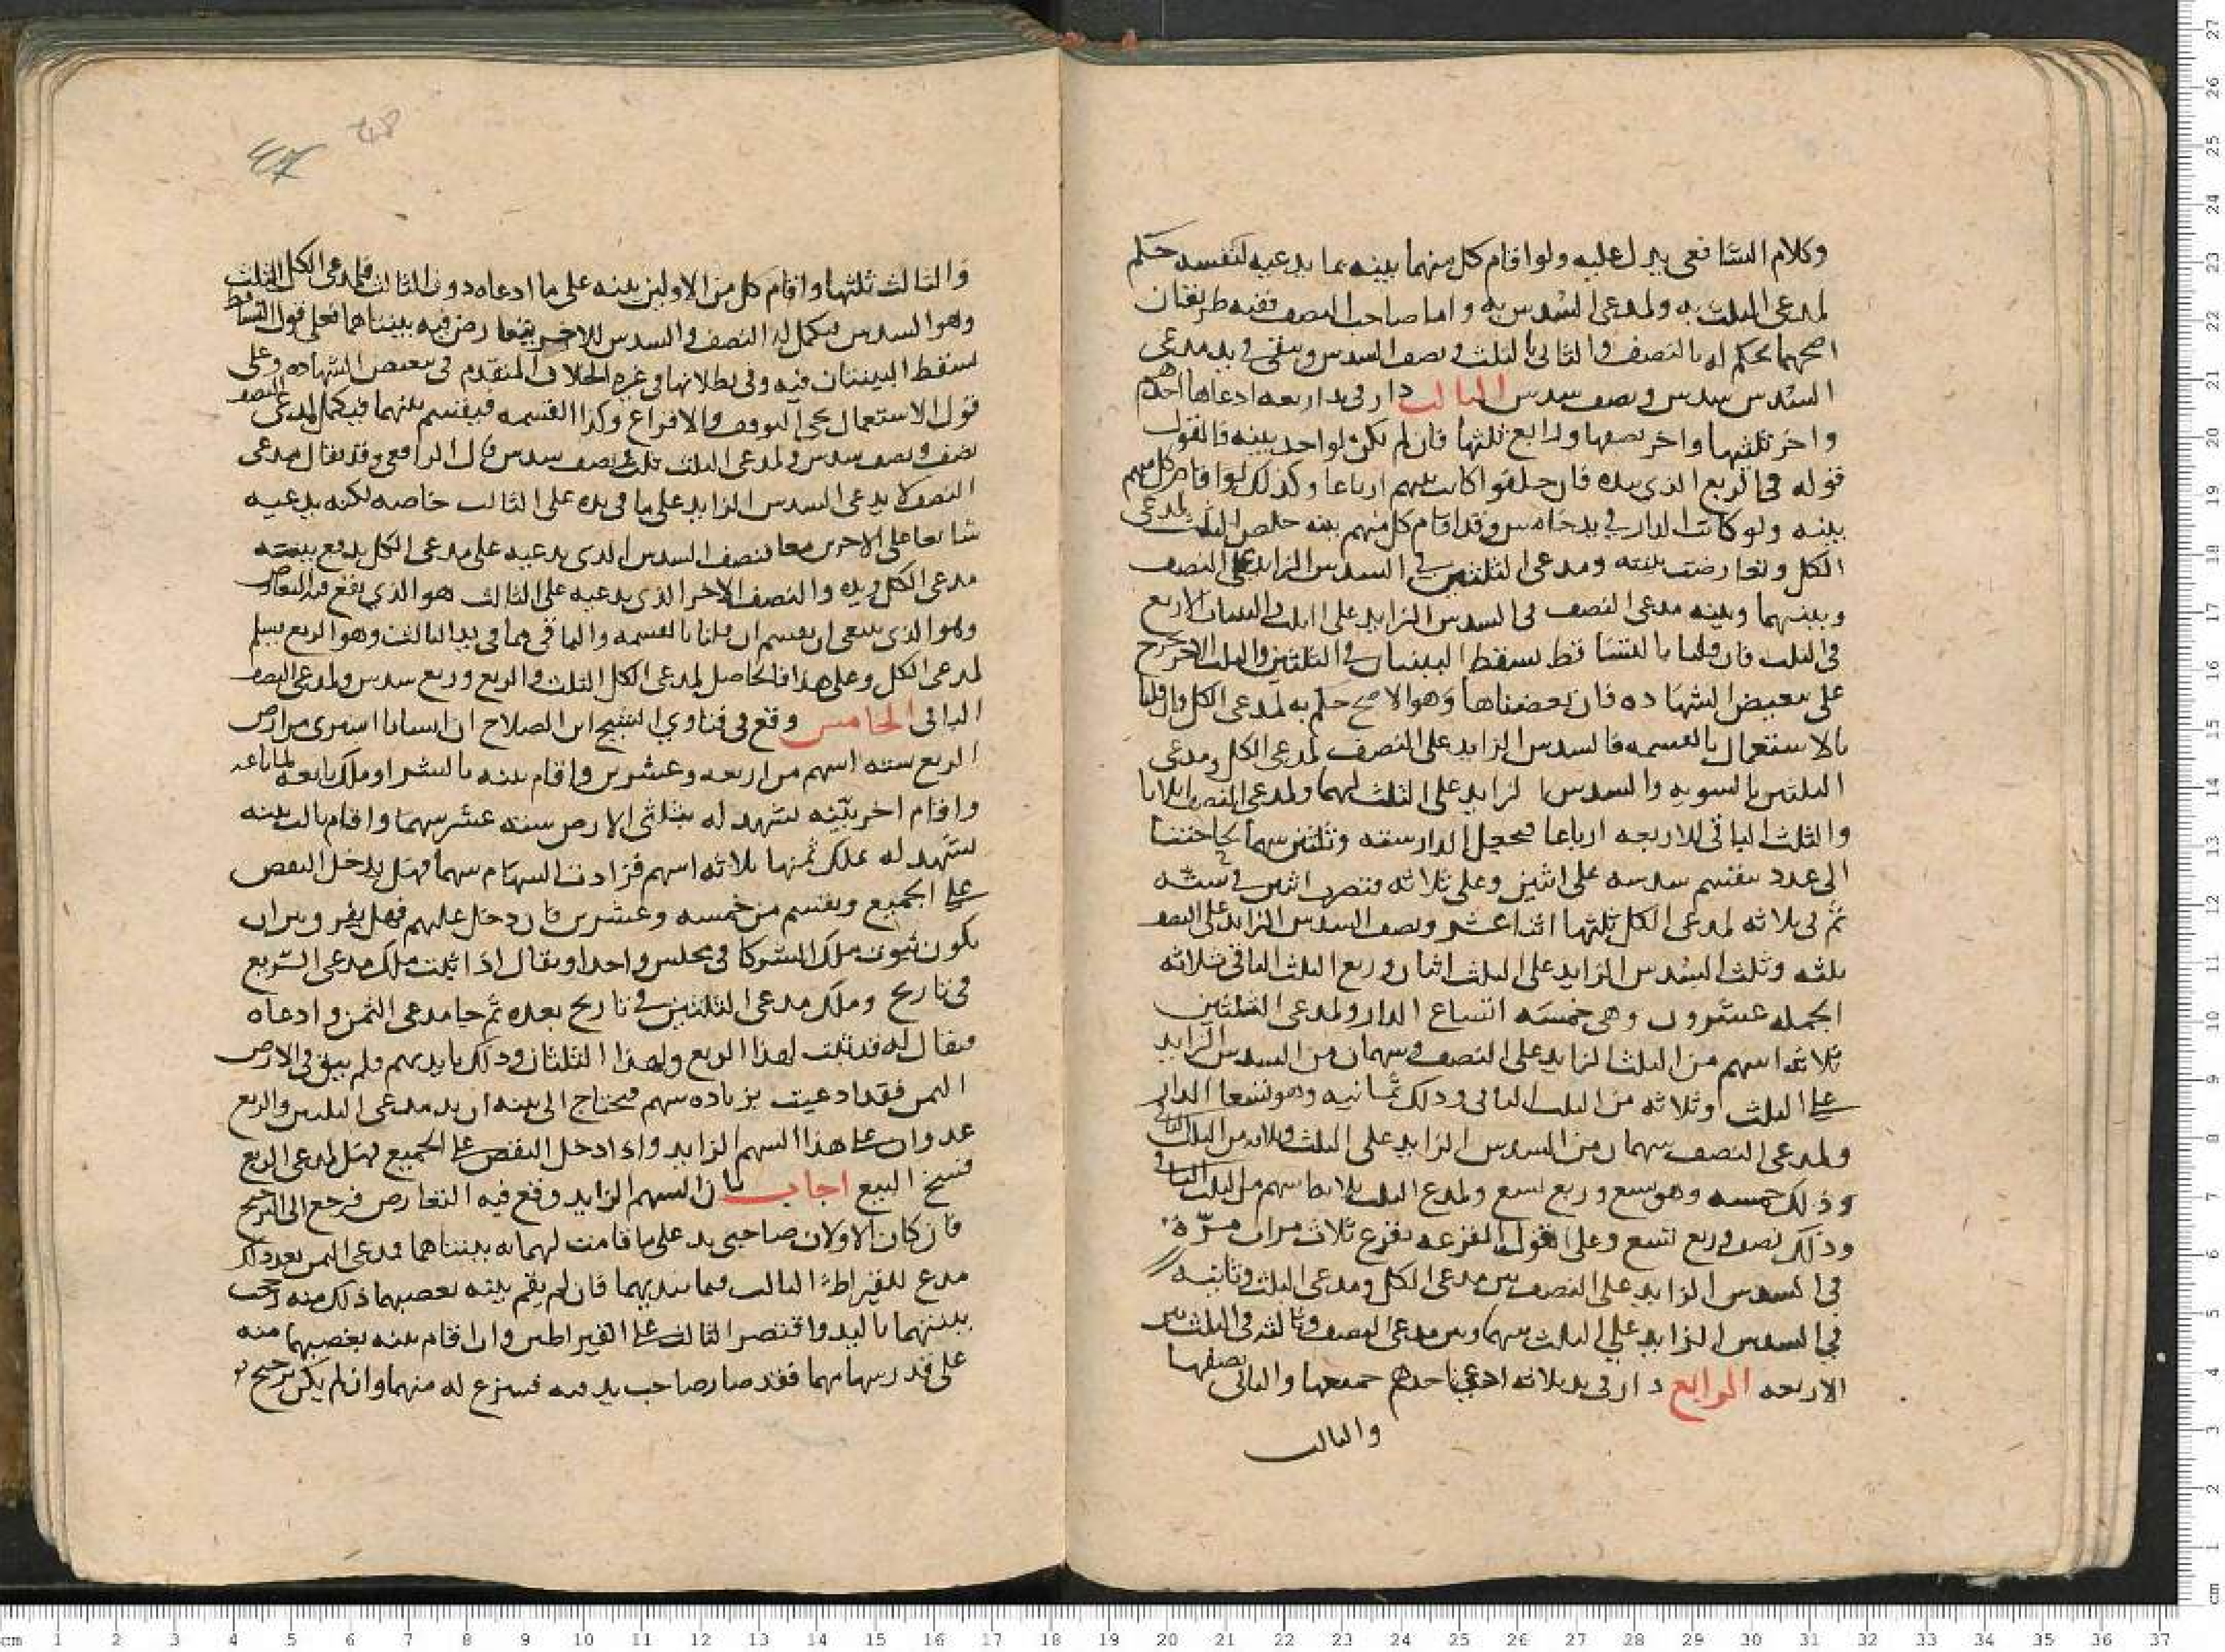 وكلام الشافعي يدل عليه ولو اقام كل منهما بينه بما يدعيه لنفسه حكم
لمدعى الثلث به ولمدعى السدس به واما صاحب النصف ففيه طريقان
اصحهما يحكم له بالنصف والثاني بالثلث ونصف السدس ويبقى في يد مدعى
السدس سدس ونصف سدس الثالث دار في يد اربعه ادعاها احدهم
واخر ثلثيها واخر نصفها ورابع ثلثها فان لم يكن لواحد بينه فالقول
قوله في الربع الذي بيده فان حلفوا كانت بينهم ارباعا وكذلك لو اقام كل منهم
بينه ولو كانت الدار في يد خامس وقد اقام كل منهم بينه خلص الثلث لمدعى
الكل وتعارضت بينته ومدعى الثلثين في السدس الزايد على النصف
وبينهما وبينه مدعى النصف في السدس الزايد على الثلث والبينات الاربع
في الثلث فان قلنا بالتساقط تسقط البينتان في الثلثين والثلث الاخر يخرج
على تبعيض الشهاده فان بعضناها وهو الاصح حكم به لمدعى الكل وان قلنا
بالاستعمال بالقسمه فالسدس الزايد على النصف لمدعى الكل ومدعى
الثلثين بالسويه والسدس الزايد على الثلث لهما ولمدعى النصف اثلاثا
والثلث الباقي للاربعه ارباعا فيجعل الدار سته وثلثين سهما لحاجتنا
الى عدد ينقسم سدسه على اثنين وعلى ثلاثه فتضرب اثنين في سته
ثم في ثلاثه لمدعى الكل ثلثها اثنا عشر ونصف السدس الزايد على النصف
ثلثه وثلث السدس الزايد على الثلث اثنان وربع الثلث الباقي ثلاثه
الجمله عشرون وهي خمسه اتساع الدار ولمدعى الثلثين
ثلاثه اسهم من الثلث الزايد على النصف وسهمان من السدس الزايد
على الثلث وثلاثه من الثلث الباقي وذلك ثمانيه وهو تسعا الدار
ولمدعى النصف سهمان من السدس الزايد على الثلث وثلاثه من الثلث الباقي
وذلك خمسه وهو تسع وربع تسع ولمدعى الثلث ثلاثه اسهم من الثلث الباقي
وذلك نصف وربع تسع وعلى القول بالقرعه يقرع ثلاث مرات مرة
في السدس الزايد على النصف بين مدعى الكل ومدعى الثلث وثانيه
في السدس الزايد على الثلث بينهما وبين مدعى النصف وثالثه في الثلث بين
الاربعه الرابع دار في يد ثلاثه ادعى احدهم جميعها والثاني نصفها
والثالث
والثالث ثلثها واقام كل من الاولين بينه على ما ادعاه دون الثالث فلمدعى الكل الثلث
وهو السدس فيكمل له النصف والسدس الاخر يتعارض فيه بينتاهما فعلى قول التساقط
تسقط البينتان فيه وفي بطلانها في غيره الخلاف المتقدم في تبعيض الشهاده وعلى
قول الاستعمال يجيء التوقف والاقراع وكذا القسمه فيقسم بينهما فيكمل لمدعى النصف
نصف ونصف سدس ولمدعى الثلث ثلث ونصف سدس قال الرافعي وقد يقال مدعى
النصف لا يدعى السدس الزايد على ما في يده على الثالث خاصه لكنه يدعيه
شايعا على الاخرين معا فنصف السدس الذي يدعيه على مدعى الكل يدفع ببينته
مدعى الكل ويده والنصف الاخر الذي يدعيه على الثالث هو الذي يقع فيه التعارض
وهو الذي ينبغي ان يقسم ان قلنا بالقسمه والباقي مما في يد الثالث وهو الربع يسلم
لمدعى الكل وعلى هذا فالحاصل لمدعى الكل الثلث والربع وربع سدس ولمدعى النصف
الباقي الخامس وقع في فتاوي الشيخ ابن الصلاح ان انسانا اشترى من ارض
الربع سته اسهم من اربعه وعشرين واقام بينه بالشرا وملك بايعه لما باعه
واقام اخر بينه تشهد له بثلثي الارض سته عشر سهما واقام ثالث بينه
تشهد له بملك ثمنها ثلاثه اسهم فزادت السهام سهما فهل يدخل النقص
على الجميع ويقسم من خمسه وعشرين فان دخل عليهم فهل يفرق بين ان
يكون ثبوت ملك الشركا في مجلس واحد او يقال اذا ثبت ملك مدعى الربع
في تاريخ وملك مدعى الثلثين في تاريخ بعده ثم جا مدعى الثمن وادعاه
فيقال له قد ثبت لهذا الربع ولهذا الثلثان وذلك بايديهم ولم يبق في الارض
الثمن فقد ادعيت بزياده سهم فيحتاج الى بينه ان يد مدعى الثلثين والربع
عدوان على هذا السهم الزايد واذا دخل النقص على الجميع فهل لمدعى الربع
فسخ البيع اجاب بان السهم الزايد وقع فيه التعارض فرجع الى الترجيح
فان كان الاولان صاحبي يد على ما قامت لهما به بينتاهما فمدعى الثمن بعد ذلك
مدع للقيراط الثالث مما بيديهما فان لم يقم بينه بغصبهما ذلك منه رجحت
بينتهما باليد واقتصر الثالث على القيراطين وان اقام بينه بغصبهما منه
على قدر سهامهما فقد صار صاحب يد فيه فينزع له منهما وان لم يكن ترجيح